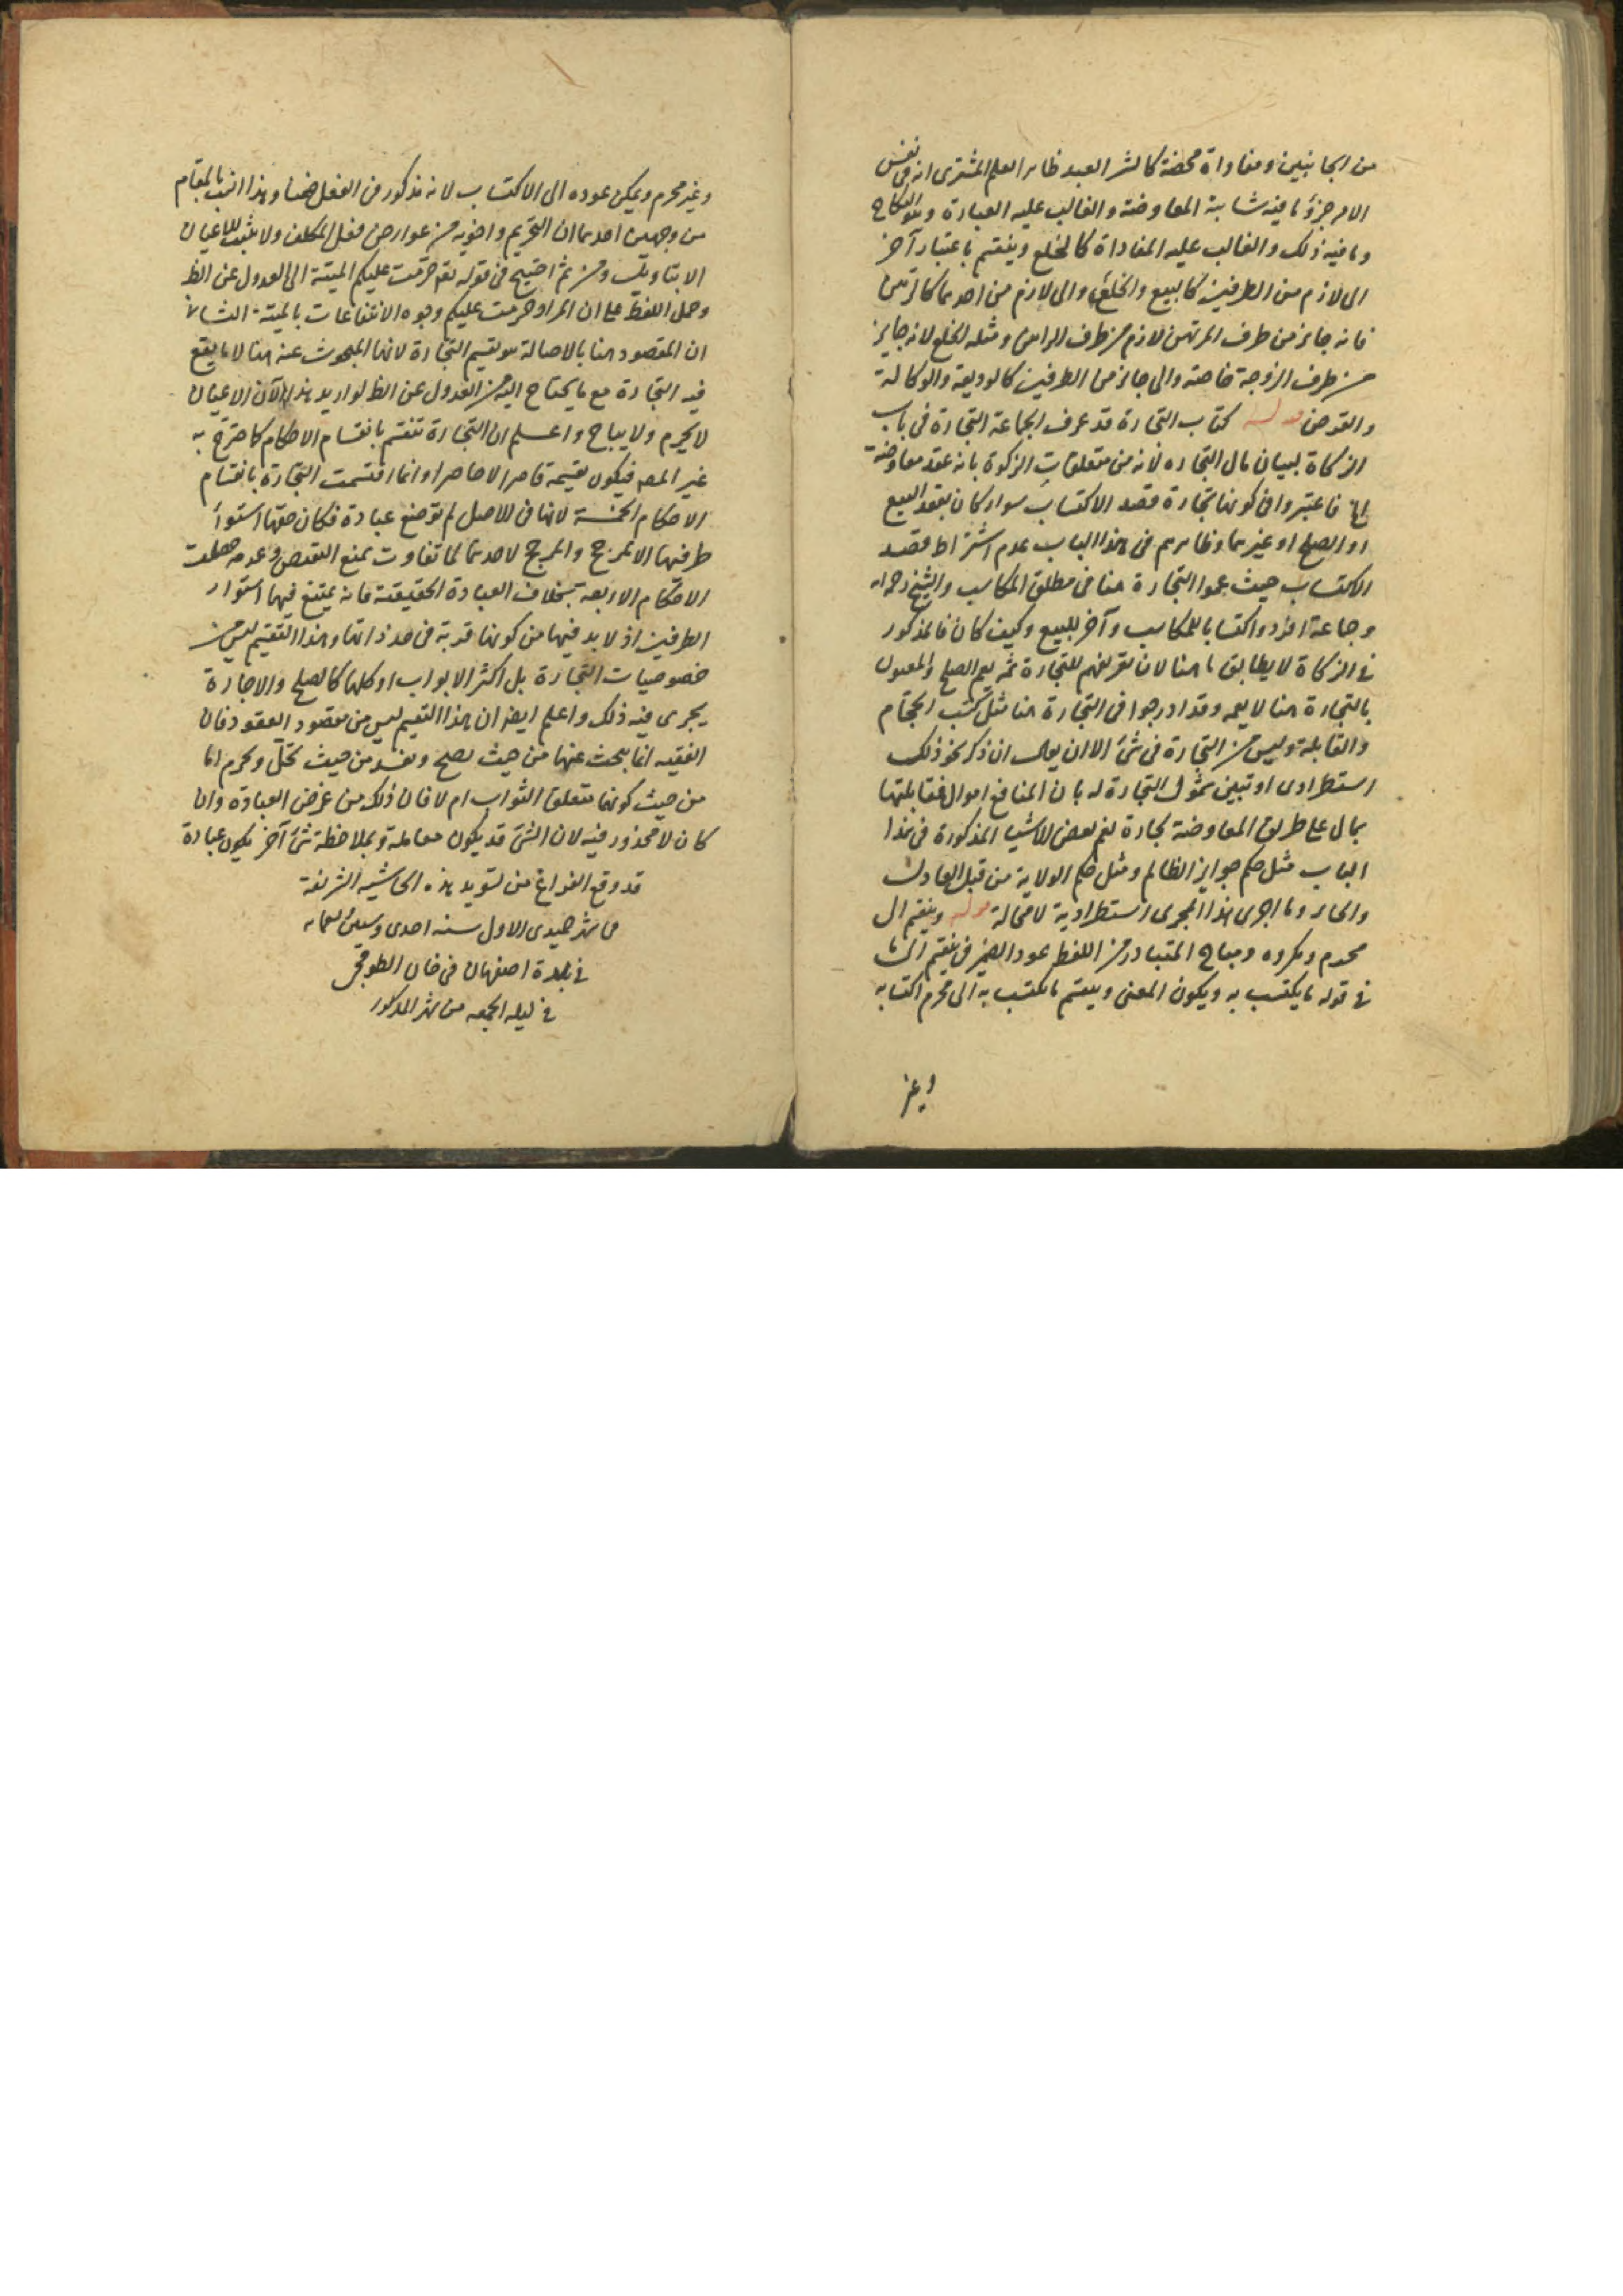 من الجانبين ومفاداة محضة كالشر العبد ظاهر العلم المشترى انه فى نفس
الامر حر وما فيه شائبة المعاوضة والغالب عليه العبادة وهو النكاح
وما فيه ذلك والغالب عليه المفاداة كالخلع وينقسم باعتبار آخر
الى لازم من الطرفين كالبيع والخلع والى لازم من احدهما كالرهن
فانه جايز من طرف المرتهن لازم من طرف الراهن ومثله الخلع لانه جايز
من طرف الزوجة خاصة والى جايز من الطرفين كالوديعة والوكالة
والقرض قوله كتاب التجارة قد عرف الجماعة التجارة فى باب
الزكاة لبيان مال التجاره لانه من متعلقات الزكوة بانه عقد معاوضة
فاعتبروا فى كونها تجارة قصد الاكتساب سواء كان بعقد البيع
او الصلح او غيرهما وظاهرهم فى هذا الباب عدم اشتراط قصد
الاكتساب حيث عموا التجارة هنا فى مطلق المكاسب والشيخ رحمه الله
وجماعة افردوا كتابا للمكاسب وآخر للبيع وكيف كان فالمذكور
فى الزكاة لا يطابق ما هنا لان تعريفهم للتجارة ثمه يعم الصلح والمعنون
بالتجارة هنا لا يعمه وقد ادرجوا فى التجارة هنا مثل كسب الحجام
والقابلة وليس من التجارة فى شئ الا ان يقال ان ذكر نحو ذلك
استطرادى او تبين شمول التجارة له بان المنافع اموال فمقابلتها
بمال على طريق المعاوضة تجارة نعم بعض الاشيا المذكورة فى هذا
الباب مثل حكم جوايز الظالم ومثل حكم الولاية من قبل العادل
والجاير وما اجرى هذا المجرى استطرادية لا محالة قوله وينقسم الى
محرم ومكروه ومباح المتبادر من اللفظ عود الضمير فى ينقسم الى ما
فى قوله ما يكتسب به ويكون المعنى وينقسم ما يكتسب به الى محرم اكتسابه
وغير
وغير محرم ويمكن عوده الى الاكتساب لانه مذكور فى الفعل ضمنا وهذا انسب بالمقام
من وجهين احدهما ان التحريم واخويه من عوارض فعل المكلف ولا يثبت للاعيان
الا بتاويل ومن ثم احتيج فى قوله تع حرمت عليكم الميتة الى العدول عن الظ
وحمل اللفظ على ان المراد حرمت عليكم وجوه الانتفاعات بالميتة الثانى
ان المقصود هنا بالاصالة هو تقسيم التجارة لانها المبحوث عنه هنا لا ما يقع
فيه التجارة مع ما يحتاج اليه من العدول عن الظ لو اريد هذا لان الاعيان
لا يحرم ولا يباح واعلم ان التجارة تنقسم بانقسام الاحكام كما صرح به
غير المصـ فيكون تقسيمه قاصرا لا حاصرا وانما اقتسمت التجارة بانقسام
الاحكام الخمسة لانها فى الاصل لم توضع عبادة فكان حقها استوآء
طرفيها الا لمرجح والمرجح لاحدهما لما تفاوت بمنع النقيض وعدمه حصلت
الاحكام الاربعة بخلاف العبادة الحقيقية فانه يمتنع فيها استواء
الطرفين اذ لا بد فيها من كونها قربة فى حد ذاتها وهذا التقسيم ليس من
خصوصيات التجارة بل اكثر الابواب او كلها كالصلح والاجارة
يجرى فيه ذلك واعلم ايضا ان هذا التقسيم ليس من مقصود العقود فان
الفقيه انما يبحث عنها من حيث تصح وتفسد من حيث تحل وتحرم اما
من حيث كونها متعلق الثواب ام لا فان ذلك من غرض العبادة وان
كان لا محذور فيه لان الشئ قد يكون معاملة وبملاحظة شئ آخر يكون عبادة
قد وقع الفراغ من تسويد هذه الحاشيه الشريفة
فى شهر جميدى الاول سنه احدى
فى بلدة اصفهان فى خان
فى ليله الجمعه من شهر المذكور